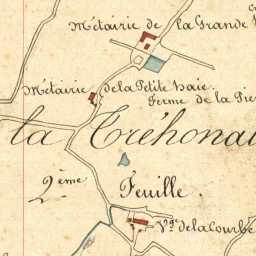 Métairie de la Grande
Métairie de la Petite haie
Ferme de la
la Tréhonai
2ème Feuille.
Vge de la Courbe